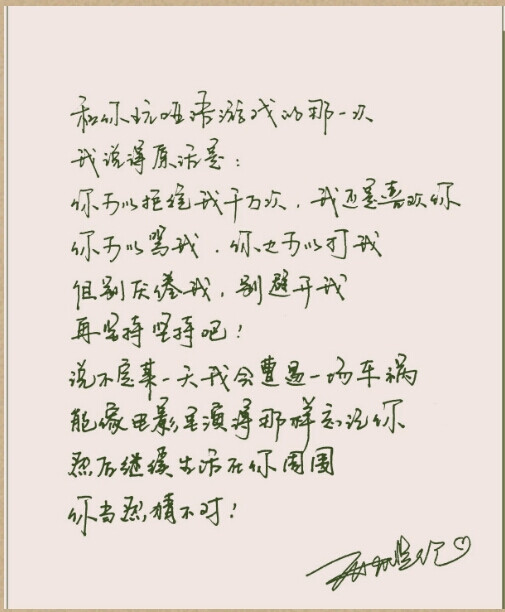 和你玩哑语游戏的那一次
我说得原话是:
你可以拒绝我千万次,我还是喜欢你
你可以骂我,你也可以打我
但别厌倦我,别避开我
再坚持坚持吧!
说不定某一天我会遭遇一场车祸
能像电影里演得那样忘记你
然后继续生活在你周围
你当然猜不对!